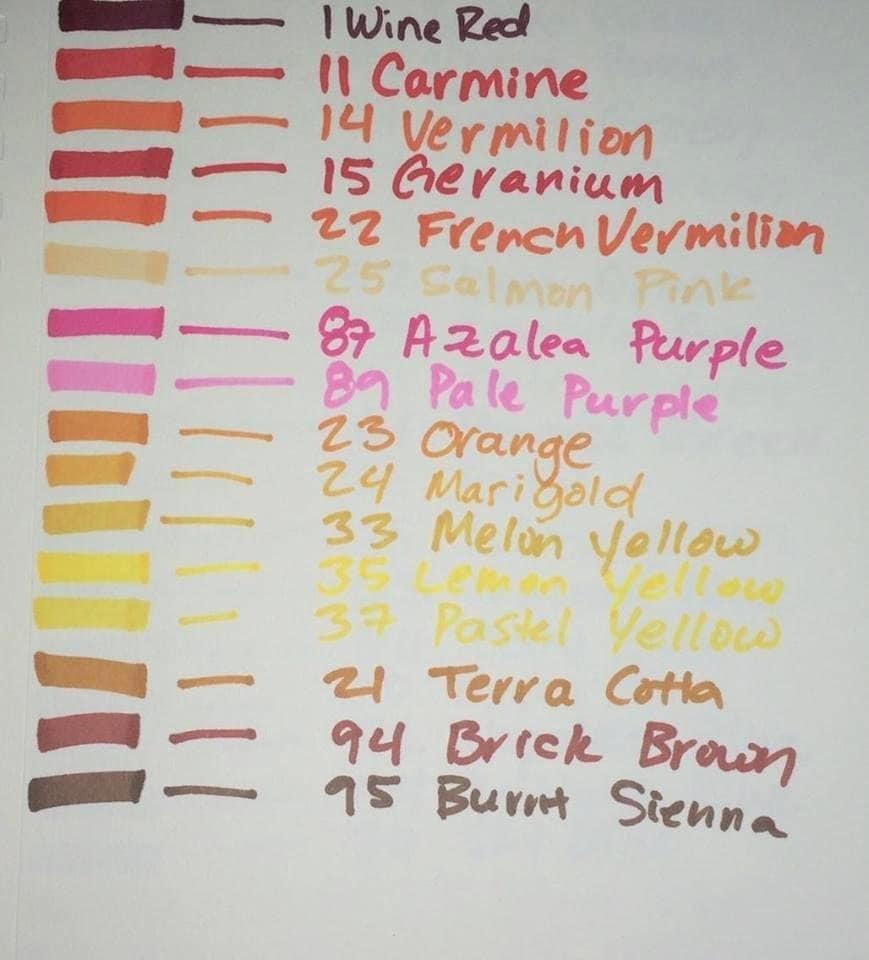 1 Wine Red
11 Carmine
14 Vermilion
15 Geranium
22 French Vermilion
25 Salmon Pink
87 Azalea Purple
89 Pale Purple
23 Orange
24 Marigold
33 Melon Yellow
35 Lemon Yellow
37 Pastel Yellow
21 Terra Cotta
94 Brick Brown
95 Burnt Sienna